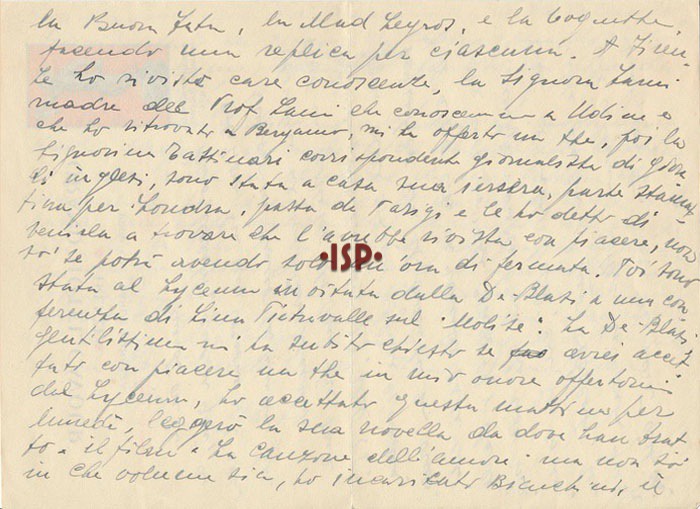 la Buona Fata, la Mad Legros, e la Coquette,
facendo una replica per ciascuna. A Firen-
ze ho rivisto care conoscenze, la Signora Lami
madre del Prof. Lami che conoscemmo a Udine e
che ho ritrovato a Bergamo, mi ha offerto un the, poi la
Signorina Tattinari corrispondente giornalista di giorna
li inglesi, sono stata a casa sua iersera, parte stamat-
tina per Londra, passa da Parigi e le ho detto di
venirla a trovare che l'avrebbe rivista con piacere, non
so' se potrà avendo solo un'ora di fermata. Poi sono
stata al Lyceum invitata dalla De-Blasi a una con
ferenza di Lina Pietravalle sul "Molise". La De-Blasi
gentilissima mi ha subito chiesto se avrei accet
tato con piacere un the in mio onore offertomi
dal Lyceum, ho accettato questa mattina per
lunedì, leggerò la sua novella da dove han trat
to "il film" La canzone dell'amore" ma non so'
in che volume sia, ho incaricato Bianchini, il
·ISP·